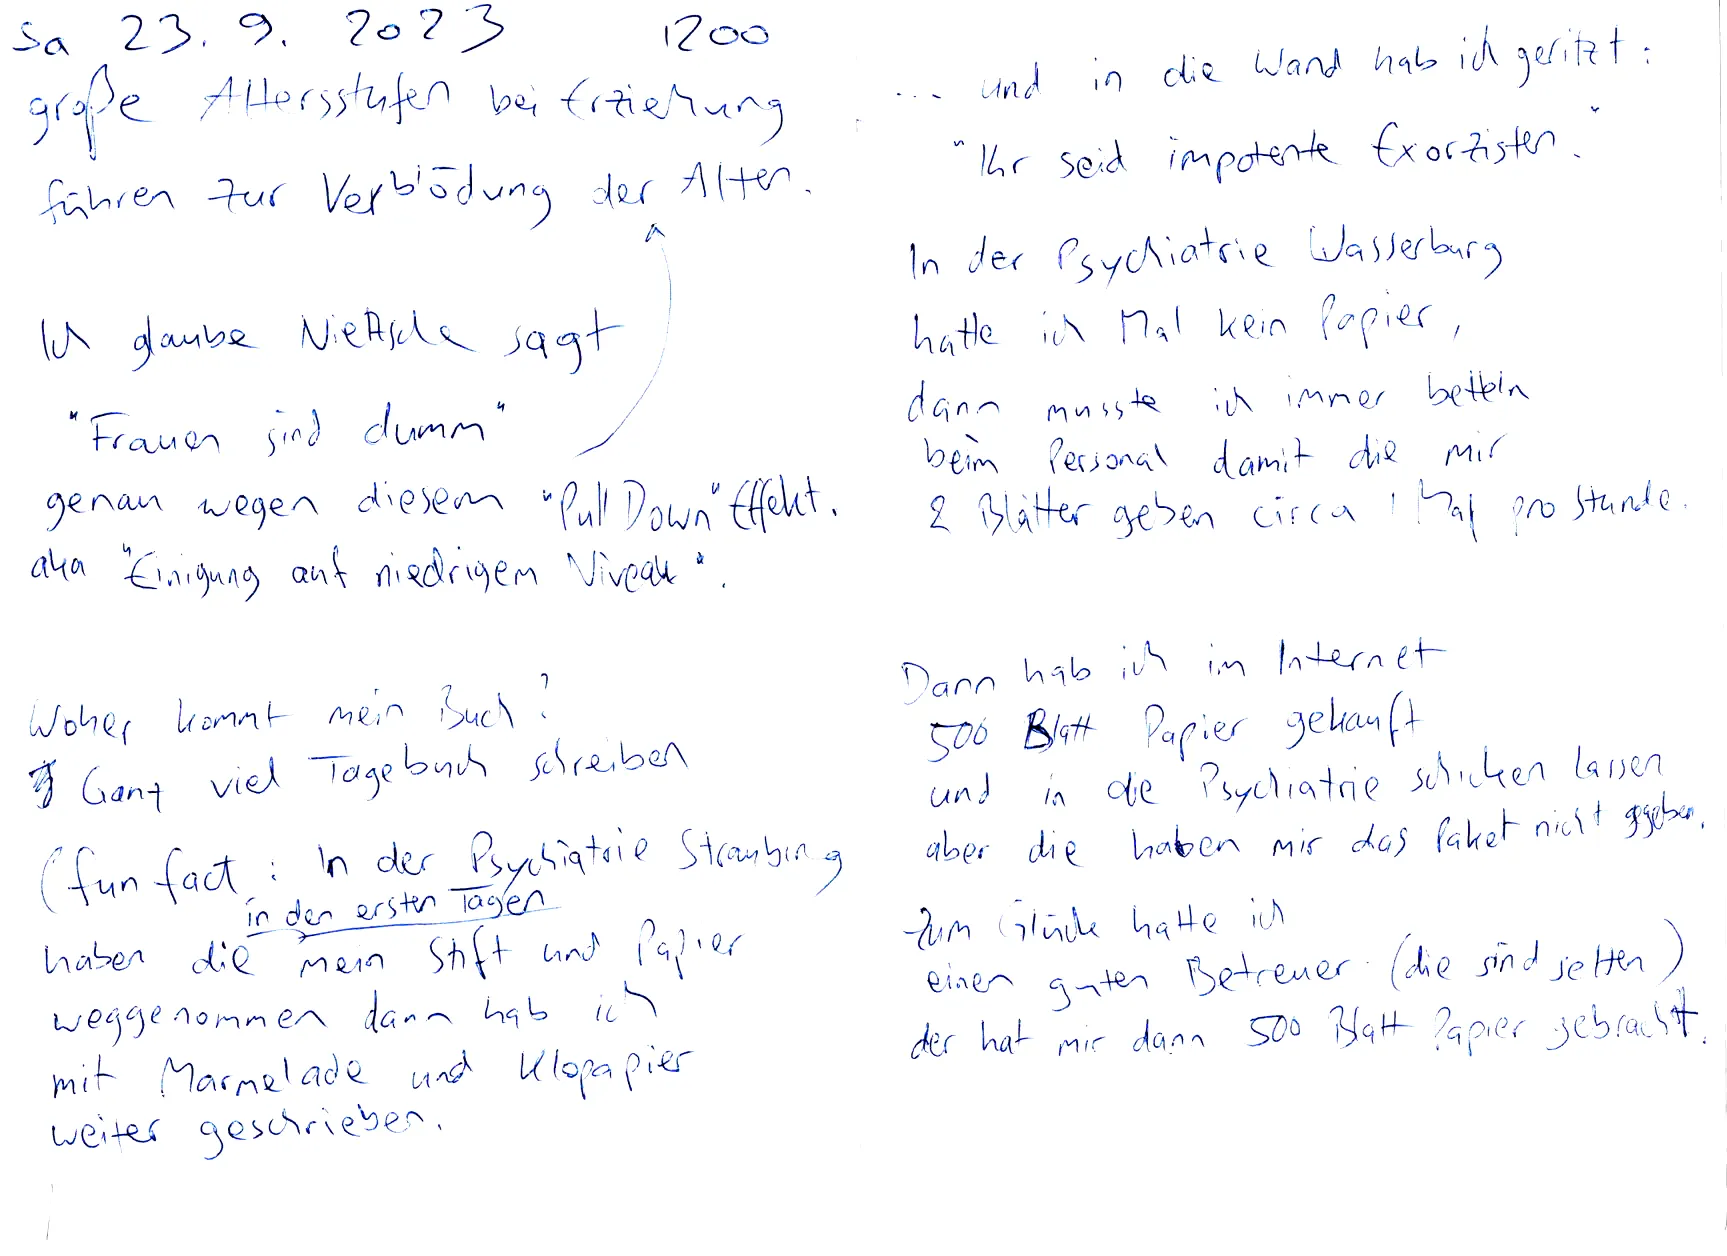 Sa 23. 9. 2023 1200
große Altersstufen bei Erziehung
führen zur Verblödung der Alten.
Ich glaube Nietzsche sagt
"Frauen sind dumm"
genau wegen diesem "Pull Down" Effekt.
aka "Einigung auf niedrigem Niveau".
Woher kommt mein Buch?
Ganz viel Tagebuch schreiben
(fun fact: In der Psychiatrie Straubing
in den ersten Tagen
haben die mein Stift und Papier
weggenommen dann hab ich
mit Marmelade und Klopapier
weiter geschrieben.
... und in die Wand hab ich geritzt:
"Ihr seid impotente Exorzisten."
In der Psychiatrie Wasserburg
hatte ich Mal kein Papier,
dann musste ich immer betteln
beim Personal damit die mir
2 Blätter geben circa 1 Mal pro Stunde.
Dann hab ich im Internet
500 Blatt Papier gekauft
und in die Psychiatrie schicken lassen
aber die haben mir das Paket nicht gegeben.
Zum Glück hatte ich
einen guten Betreuer (die sind selten)
der hat mir dann 500 Blatt Papier gebracht.